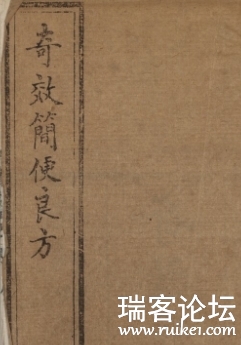 奇效簡便良方
瑞客论坛
www.ruike1.com